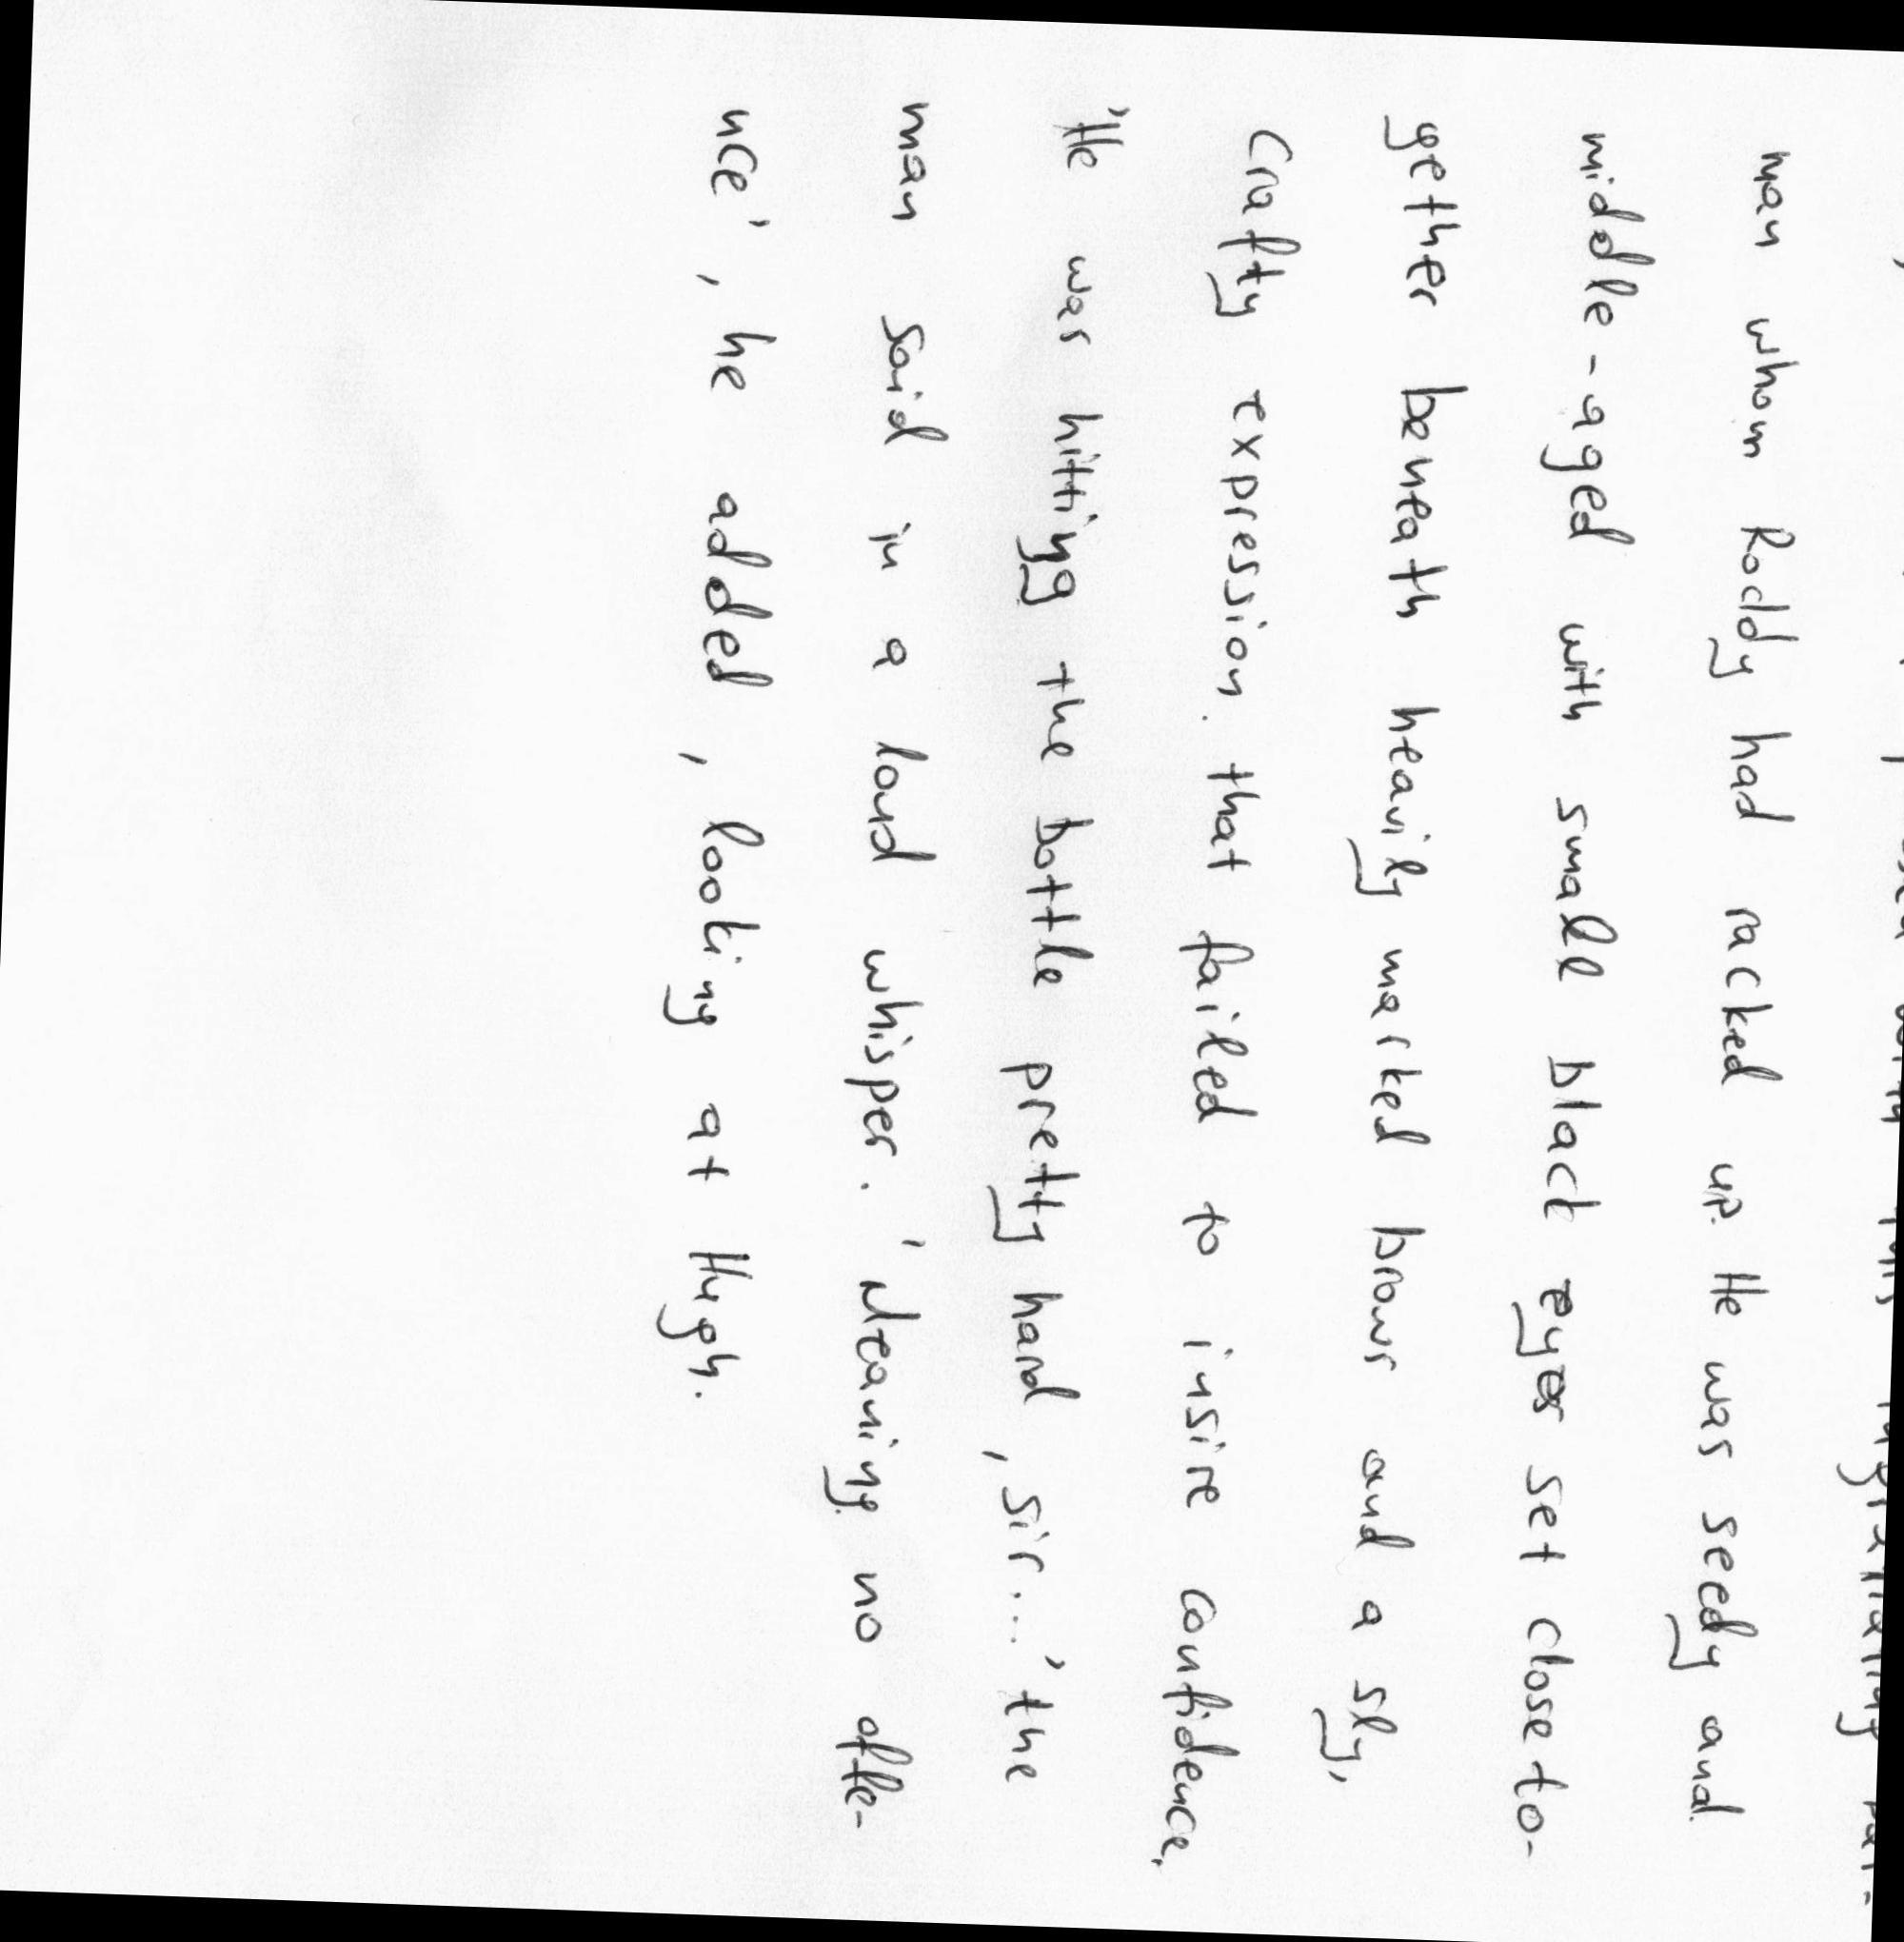 man whom Roddy had racked up. He was seedy and
middle-aged with small black eyes set close to-
gether beneath heavily marked brows and a sly,
crafty expression. that failed to insire confidence.
'He was hitting the bottle pretty hard, sir...' the
man said in a loud whisper. 'Meaning no offe-
nce', he added, looking at Hugh.